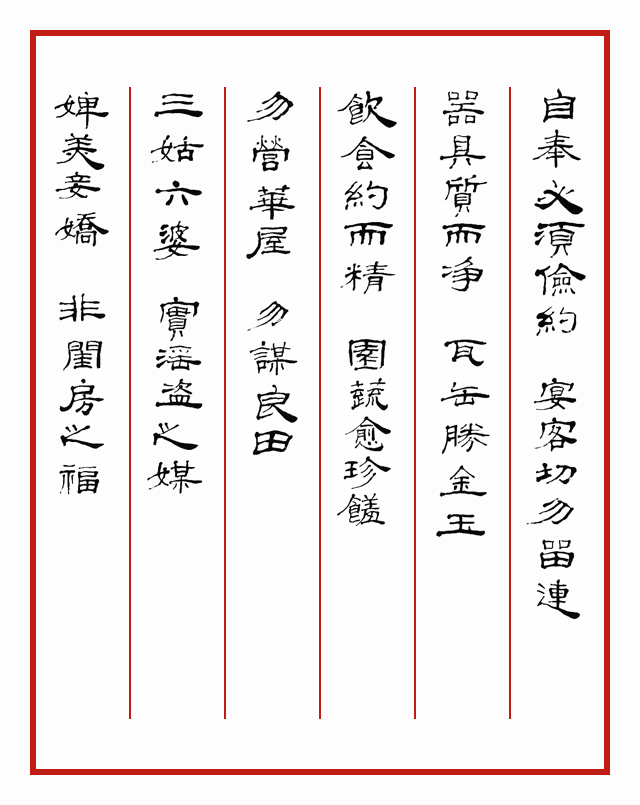 自奉必須儉約 宴客切勿畱連
器具質而净 瓦缶勝金玉
飲食約而精 園蔬愈珍饈
勿營華屋 勿謀良田
三姑六婆 實淫盗之媒
婢美妾嬌 非閨房之福